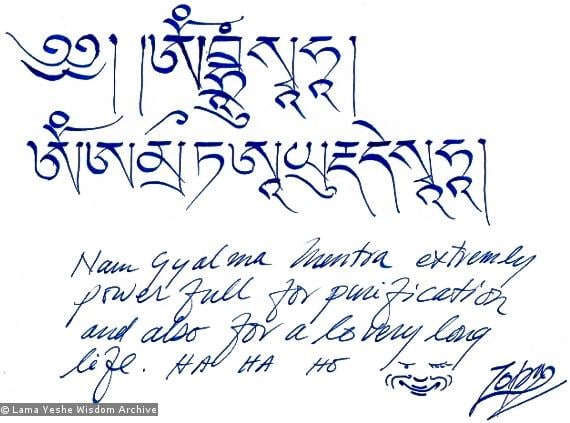 ༄༅། །ཨོཾབྷྲཱུཾསྭཱཧཱ།
ཨོཾཨམྲྀཏཨཱཡུརྡདེསྭཱཧཱ།
Nam Gyalma Mentra extremly
power full for purification
and also for a lovery long
life. HA HA HO
Zopa
© Lama Yeshe Wisdom Archive